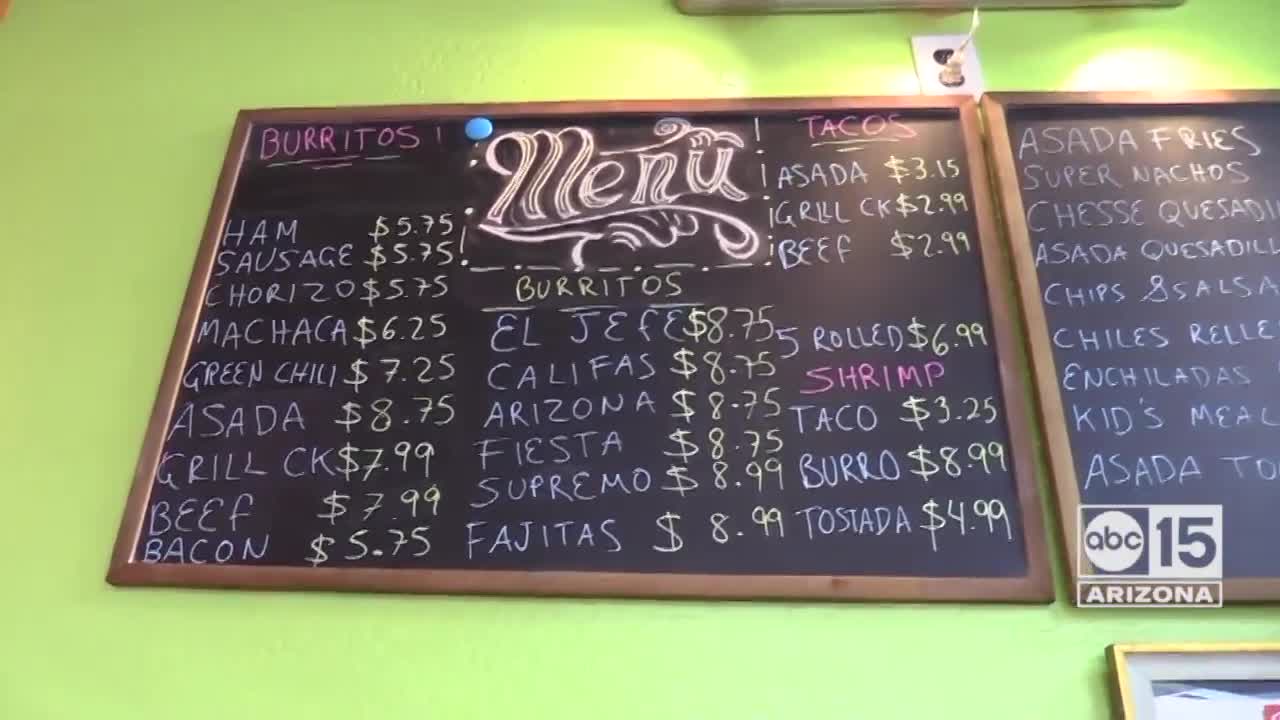 BURRITOS
HAM $5.75
SAUSAGE $5.75
CHORIZO $5.75
MACHACA $6.25
GREEN CHILI $7.25
ASADA $8.75
GRILL CK $7.99
BEEF $7.99
BACON $5.75
Menu
BURRITOS
EL JEFE $8.75
CALIFAS $8.75
ARIZONA $8.75
FIESTA $8.75
SUPREMO $8.99
FAJITAS $8.99
TACOS
ASADA $3.15
GRILL CK $2.99
BEEF $2.99
5 ROLLED $6.99
SHRIMP
TACO $3.25
BURRO $8.99
TOSTADA $4.99
ASADA FRIES
SUPER NACHOS
CHESSE QUESADI
ASADA QUESADILL
CHIPS & SALSA
CHILES RELLE
ENCHILADAS
KID'S MEAL
ASADA TO
abc 15
ARIZONA